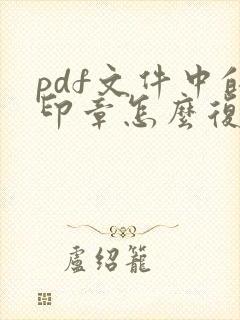 pdf文件中的
印章怎麼復
盧绍籠